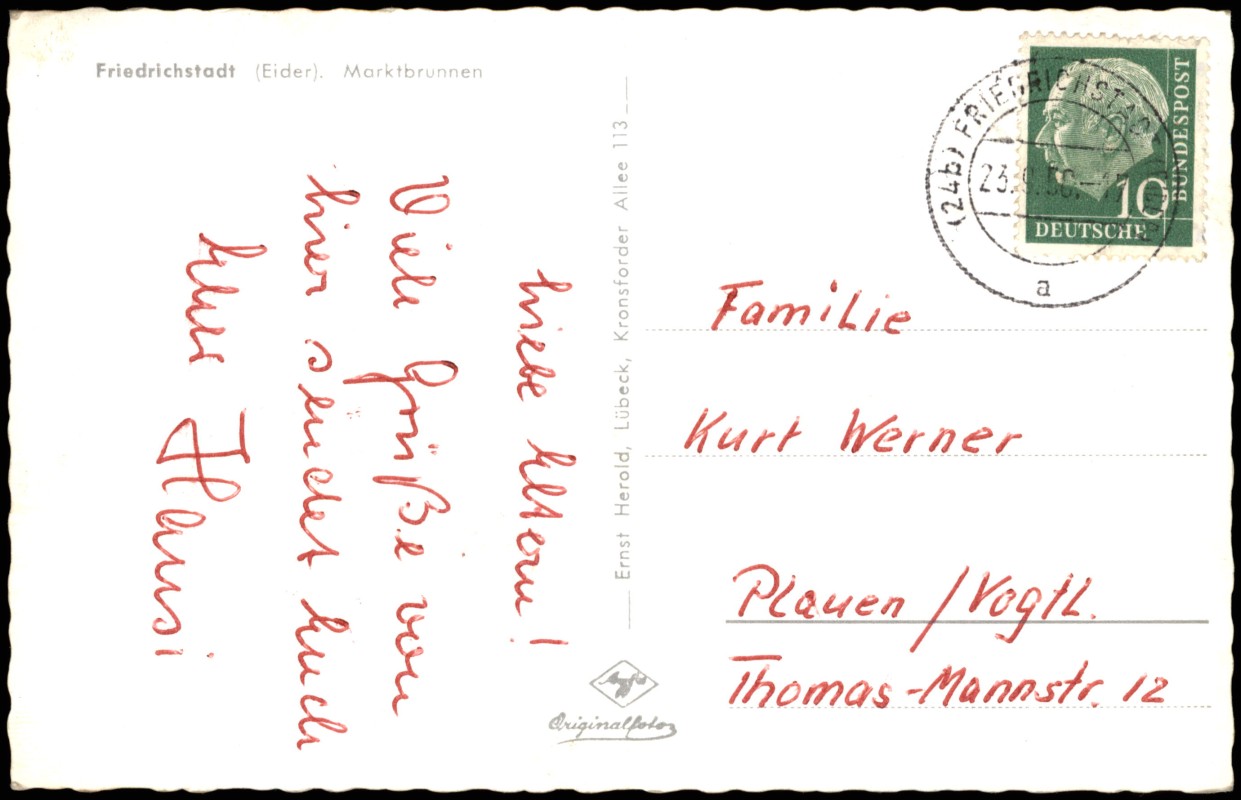 Friedrichstadt (Eider). Marktbrunnen
Liebe Eltern!
Viele Grüße von
hier sendet Euch
Euer Hansi
Ernst Herold, Lübeck, Kronsforder Allee 113
Agfa
Originalfoto
(24b) FRIEDRICHSTADT
a
10
DEUTSCHE
BUNDESPOST
Familie
Kurt Werner
Plauen /Vogtl.
Thomas-Mannstr. 12